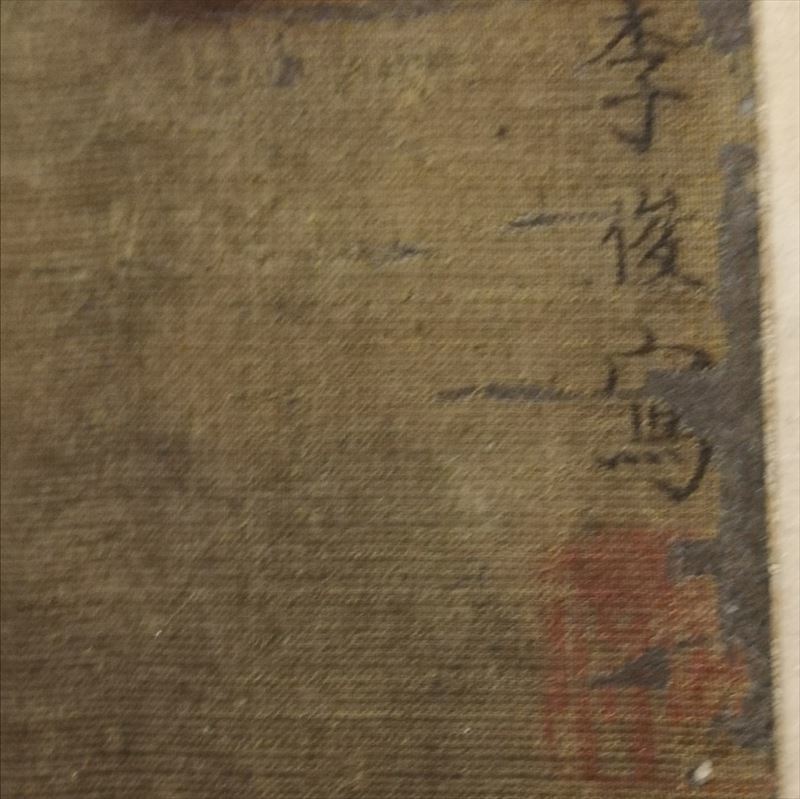 李俊寫